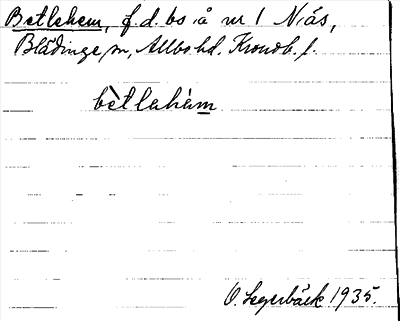 Betlehem, f.d. bs å nr 1 Näs,
Blädinge sn, Allbo hd. Kronob. l.
bètlehèm
O. Segerbäck 1935.